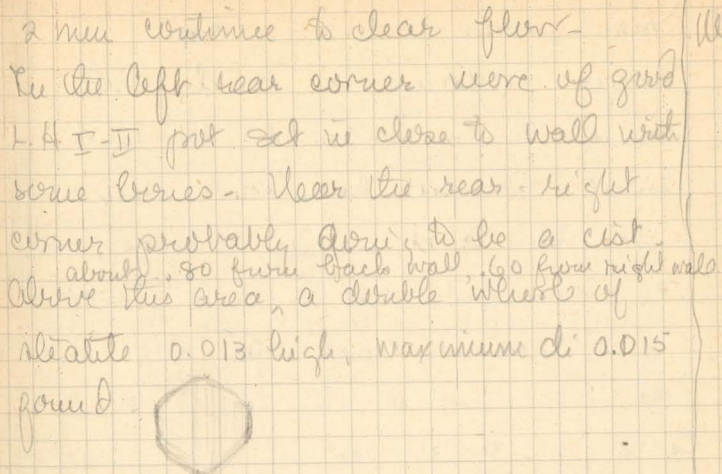 2 men continue to clear floor -
In the left rear corner more of good
L.H I-II pot set in close to wall with
some bones - Near the rear right
corner probably going to be a cist.
about .80 from back wall, .60 from right wall
Above this area, a double whorl of
steatite 0.013 high, maximum di 0.015
found